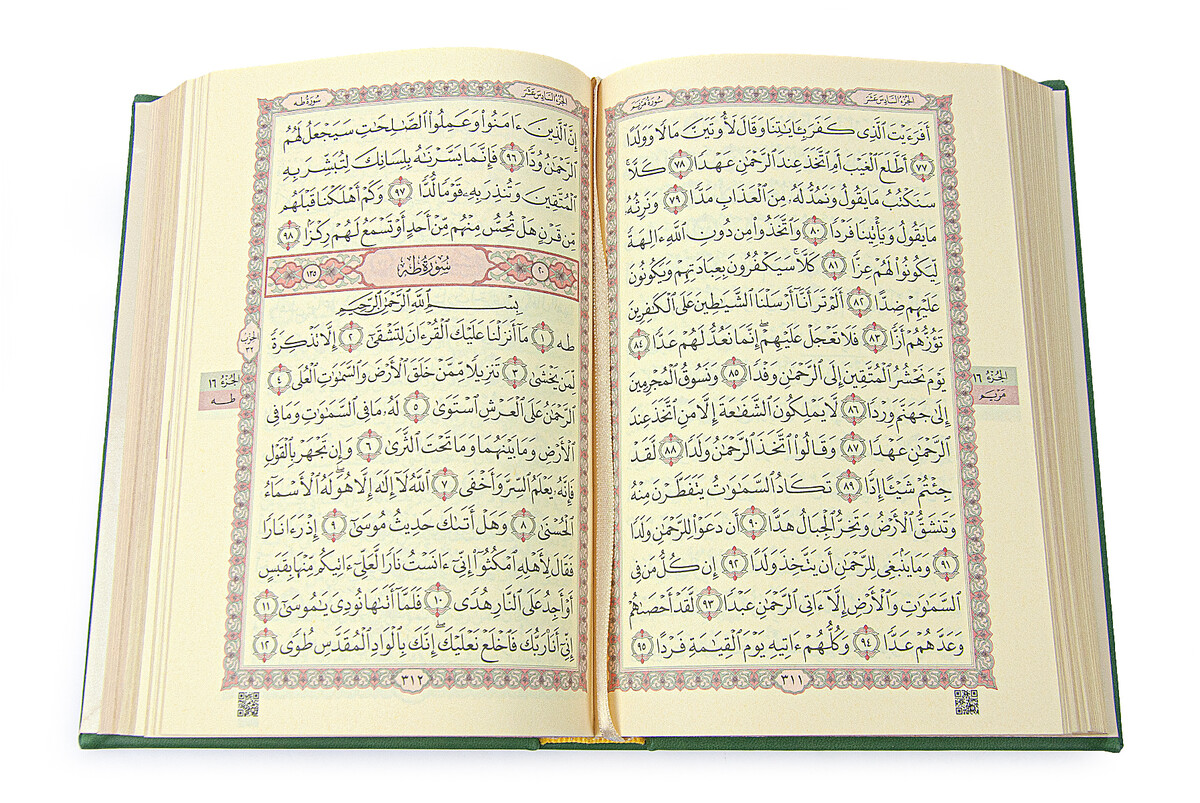 سُورَةُ مَرْيَم
الجُزْءُ السَّادِسَ عَشَرَ
أَفَرَءَيْتَ ٱلَّذِى كَفَرَ بِـَٔايَـٰتِنَا وَقَالَ لَأُوتَيَنَّ مَالًا وَوَلَدًا
٧٧ أَطَّلَعَ ٱلْغَيْبَ أَمِ ٱتَّخَذَ عِندَ ٱلرَّحْمَـٰنِ عَهْدًا ٧٨ كَلَّا ۚ
سَنَكْتُبُ مَا يَقُولُ وَنَمُدُّ لَهُۥ مِنَ ٱلْعَذَابِ مَدًّا ٧٩ وَنَرِثُهُۥ
مَا يَقُولُ وَيَأْتِينَا فَرْدًا ٨٠ وَٱتَّخَذُوا۟ مِن دُونِ ٱللَّهِ ءَالِهَةً
لِّيَكُونُوا۟ لَهُمْ عِزًّا ٨١ كَلَّا ۚ سَيَكْفُرُونَ بِعِبَادَتِهِمْ وَيَكُونُونَ
عَلَيْهِمْ ضِدًّا ٨٢ أَلَمْ تَرَ أَنَّآ أَرْسَلْنَا ٱلشَّيَـٰطِينَ عَلَى ٱلْكَـٰفِرِينَ
تَؤُزُّهُمْ أَزًّا ٨٣ فَلَا تَعْجَلْ عَلَيْهِمْ ۖ إِنَّمَا نَعُدُّ لَهُمْ عَدًّا ٨٤
يَوْمَ نَحْشُرُ ٱلْمُتَّقِينَ إِلَى ٱلرَّحْمَـٰنِ وَفْدًا ٨٥ وَنَسُوقُ ٱلْمُجْرِمِينَ
إِلَىٰ جَهَنَّمَ وِرْدًا ٨٦ لَّا يَمْلِكُونَ ٱلشَّفَـٰعَةَ إِلَّا مَنِ ٱتَّخَذَ عِندَ
ٱلرَّحْمَـٰنِ عَهْدًا ٨٧ وَقَالُوا۟ ٱتَّخَذَ ٱلرَّحْمَـٰنُ وَلَدًا ٨٨ لَّقَدْ
جِئْتُمْ شَيْـًٔا إِدًّا ٨٩ تَكَادُ ٱلسَّمَـٰوَٰتُ يَتَفَطَّرْنَ مِنْهُ
وَتَنشَقُّ ٱلْأَرْضُ وَتَخِرُّ ٱلْجِبَالُ هَدًّا ٩٠ أَن دَعَوْا۟ لِلرَّحْمَـٰنِ وَلَدًا
٩١ وَمَا يَنۢبَغِى لِلرَّحْمَـٰنِ أَن يَتَّخِذَ وَلَدًا ٩٢ إِن كُلُّ مَن فِى
ٱلسَّمَـٰوَٰتِ وَٱلْأَرْضِ إِلَّآ ءَاتِى ٱلرَّحْمَـٰنِ عَبْدًا ٩٣ لَّقَدْ أَحْصَىٰهُمْ
وَعَدَّهُمْ عَدًّا ٩٤ وَكُلُّهُمْ ءَاتِيهِ يَوْمَ ٱلْقِيَـٰمَةِ فَرْدًا ٩٥
الجُزْءُ ١٦
مَرْيَم
٣١١
سُورَةُ طه
الجُزْءُ السَّادِسَ عَشَرَ
إِنَّ ٱلَّذِينَ ءَامَنُوا۟ وَعَمِلُوا۟ ٱلصَّـٰلِحَـٰتِ سَيَجْعَلُ لَهُمُ
ٱلرَّحْمَـٰنُ وُدًّا ٩٦ فَإِنَّمَا يَسَّرْنَـٰهُ بِلِسَانِكَ لِتُبَشِّرَ بِهِ
ٱلْمُتَّقِينَ وَتُنذِرَ بِهِۦ قَوْمًا لُّدًّا ٩٧ وَكَمْ أَهْلَكْنَا قَبْلَهُم
مِّن قَرْنٍ هَلْ تُحِسُّ مِنْهُم مِّنْ أَحَدٍ أَوْ تَسْمَعُ لَهُمْ رِكْزًۢا ٩٨
٢٠ سُورَةُ طه ١٣٥
بِسْمِ ٱللَّهِ ٱلرَّحْمَـٰنِ ٱلرَّحِيمِ
طه ١ مَآ أَنزَلْنَا عَلَيْكَ ٱلْقُرْءَانَ لِتَشْقَىٰٓ ٢ إِلَّا تَذْكِرَةً
لِّمَن يَخْشَىٰ ٣ تَنزِيلًا مِّمَّنْ خَلَقَ ٱلْأَرْضَ وَٱلسَّمَـٰوَٰتِ ٱلْعُلَى ٤
ٱلرَّحْمَـٰنُ عَلَى ٱلْعَرْشِ ٱسْتَوَىٰ ٥ لَهُۥ مَا فِى ٱلسَّمَـٰوَٰتِ وَمَا فِى
ٱلْأَرْضِ وَمَا بَيْنَهُمَا وَمَا تَحْتَ ٱلثَّرَىٰ ٦ وَإِن تَجْهَرْ بِٱلْقَوْلِ
فَإِنَّهُۥ يَعْلَمُ ٱلسِّرَّ وَأَخْفَى ٧ ٱللَّهُ لَآ إِلَـٰهَ إِلَّا هُوَ ۖ لَهُ ٱلْأَسْمَآءُ
ٱلْحُسْنَىٰ ٨ وَهَلْ أَتَىٰكَ حَدِيثُ مُوسَىٰٓ ٩ إِذْ رَءَا نَارًا
فَقَالَ لِأَهْلِهِ ٱمْكُثُوٓا۟ إِنِّىٓ ءَانَسْتُ نَارًا لَّعَلِّىٓ ءَاتِيكُم مِّنْهَا بِقَبَسٍ
أَوْ أَجِدُ عَلَى ٱلنَّارِ هُدًى ١٠ فَلَمَّآ أَتَىٰهَا نُودِىَ يَـٰمُوسَىٰٓ ١١
إِنِّىٓ أَنَا۠ رَبُّكَ فَٱخْلَعْ نَعْلَيْكَ ۖ إِنَّكَ بِٱلْوَادِ ٱلْمُقَدَّسِ طُوًى ١٢
الحِزْبُ
٣٢
الجُزْءُ ١٦
طه
٣١٢